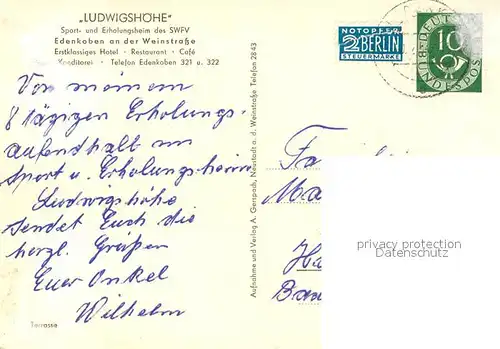 "LUDWIGSHÖHE"
Sport- und Erholungsheim des SWFV
Edenkoben an der Weinstraße
Erstklassiges Hotel · Restaurant · Café
Konditorei · Telefon Edenkoben 321 u. 322
Von meinem
8 tägigen Erholungs-
aufenthalt im
Sport u. Erholungsheim
Ludwigshöhe
sendet Euch die
herzl. Grüßen
Euer Onkel
Wilhelm
Terrasse
Aufnahme und Verlag A. Gerspach, Neustadt a. d. Weinstraße Telefon 2843
NOTOPFER
2 BERLIN
STEUERMARKE
10
DEUTSCHE
BUNDESPOST
Fa
Ma
Ha
privacy protection
Datenschutz